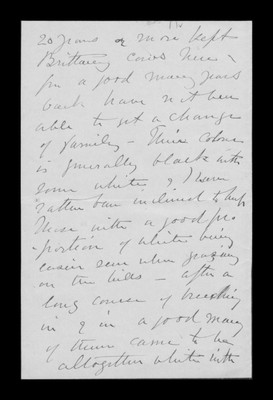 20 years or more kept
Brittany cows here &
for a good many years
back have not been
able to get a change
of family - Their colour
is generally black with
some white & I have
rather been inclined to keep
those with a good pro
portion of white being
easier seen when grazing
on the hills - after a
long course of breeding
in & in a good many
of them came to be
altogether white with